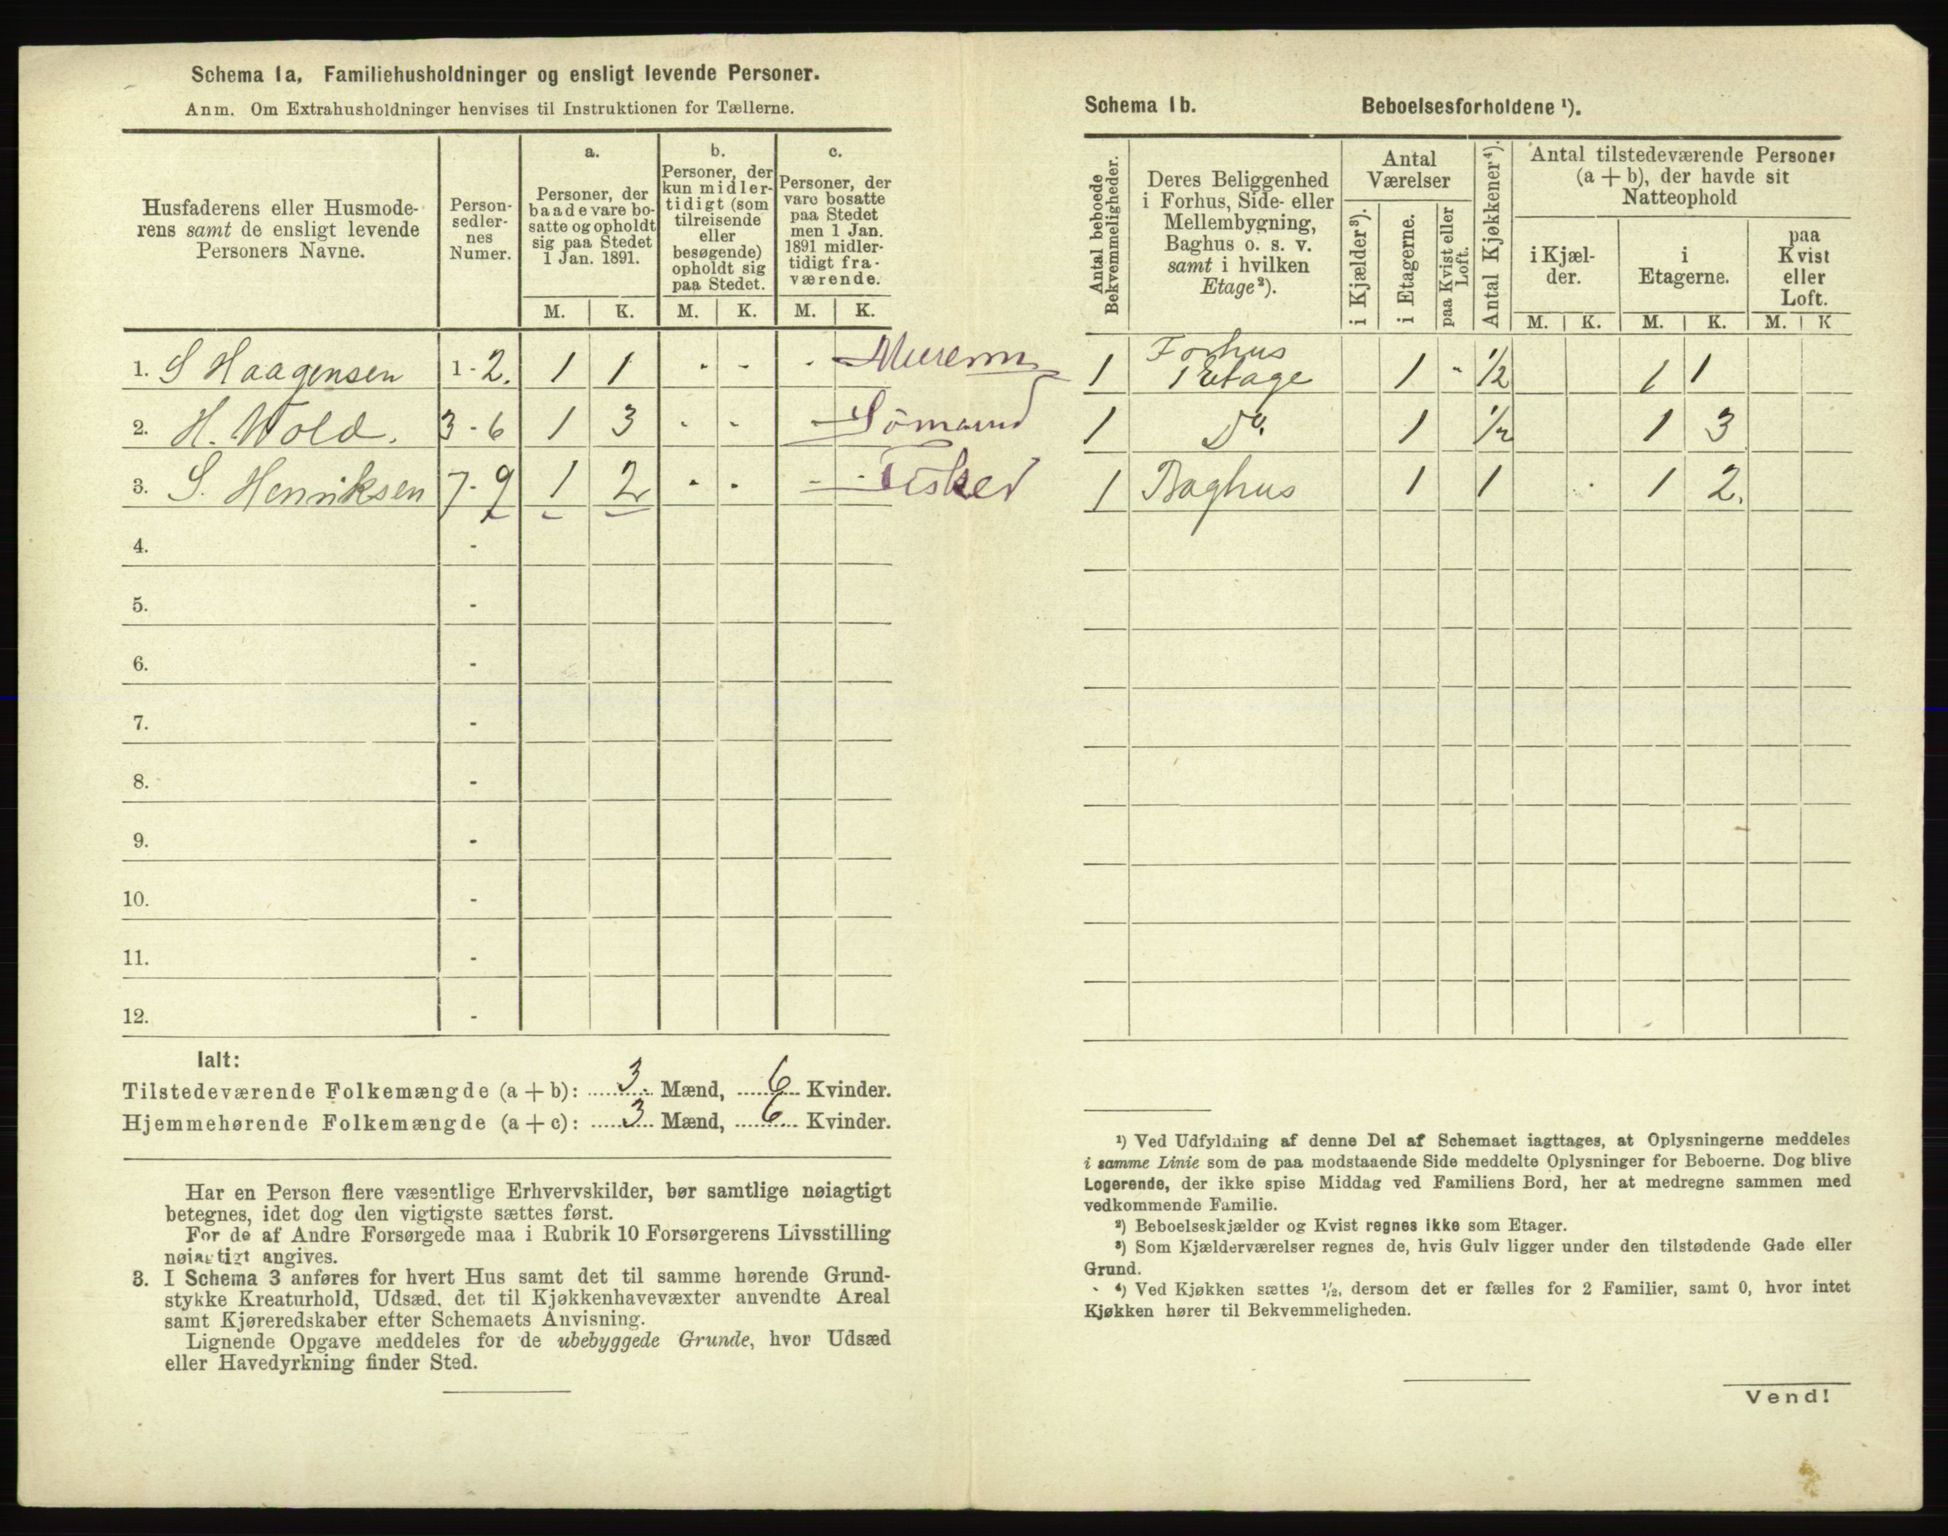 Schema 1a, Familiehusholdninger og ensligt levende Personer.
Anm. Om Extrahusholdninger henvises til Instruktionen for Tællerne.
Husfaderens eller Husmode-
rens samt de ensligt levende
Personers Navne.
Person-
sedler-
nes
Numer.
a.
Personer, der
baade vare bo-
satte og opholdt
sig paa Stedet
1 Jan. 1891.
b.
Personer, der
kun midler-
tidigt (som
tilreisende
eller
besøgende)
opholdt sig
paa Stedet.
c.
Personer, der
vare bosatte
paa Stedet
men 1 Jan.
1891 midler-
tidigt fra-
værende.
M. K. M. K. M. K.
1. S Haagensen 1-2. 1 1 - - -
2. H. Wold. 3-6 1 3 - - - Sømand
3. S. Henriksen 7-9 1 2 - - - - Fisker
4. -
5. -
6. -
7. -
8. -
9. -
10. -
11. -
12. -
Ialt:
Tilstedeværende Folkemængde (a + b): 3 Mænd, 6 Kvinder.
Hjemmehørende Folkemængde (a + c): 3 Mænd, 6 Kvinder.
Har en Person flere væsentlige Erhvervskilder, bør samtlige nøiagtigt
betegnes, idet dog den vigtigste sættes først.
For de af Andre Forsørgede maa i Rubrik 10 Forsørgerens Livsstilling
nøiagtigt angives.
3. I Schema 3 anføres for hvert Hus samt det til samme hørende Grund-
stykke Kreaturhold, Udsæd, det til Kjøkkenhavevæxter anvendte Areal
samt Kjøreredskaber efter Schemaets Anvisning.
Lignende Opgave meddeles for de ubebyggede Grunde, hvor Udsæd
eller Havedyrkning finder Sted.
Schema 1b. Beboelsesforholdene ¹).
Antal beboede
Bekvemmeligheder.
Deres Beliggenhed
i Forhus, Side- eller
Mellembygning,
Baghus o. s. v.
samt i hvilken
Etage²).
Antal
Værelser
i Kjælder³).
i Etagerne.
paa Kvist eller
Loft.
Antal Kjøkkener⁴).
Antal tilstedeværende Personer
(a + b), der havde sit
Natteophold
i Kjæl-
der.
i
Etagerne.
paa
Kvist
eller
Loft.
M. K. M. K. M. K
1 Forhus
1 Etage 1 - ½ 1 1
1 Do. 1 ½ 1 3
1 Baghus 1 1 1 2.
¹) Ved Udfyldning af denne Del af Schemaet iagttages, at Oplysningerne meddeles
i samme Linie som de paa modstaaende Side meddelte Oplysninger for Beboerne. Dog blive
Logerende, der ikke spise Middag ved Familiens Bord, her at medregne sammen med
vedkommende Familie.
²) Beboelseskjælder og Kvist regnes ikke som Etager.
³) Som Kjælderværelser regnes de, hvis Gulv ligger under den tilstødende Gade eller
Grund.
⁴) Ved Kjøkken sættes ½, dersom det er fælles for 2 Familier, samt 0, hvor intet
Kjøkken hører til Bekvemmeligheden.
Vend!